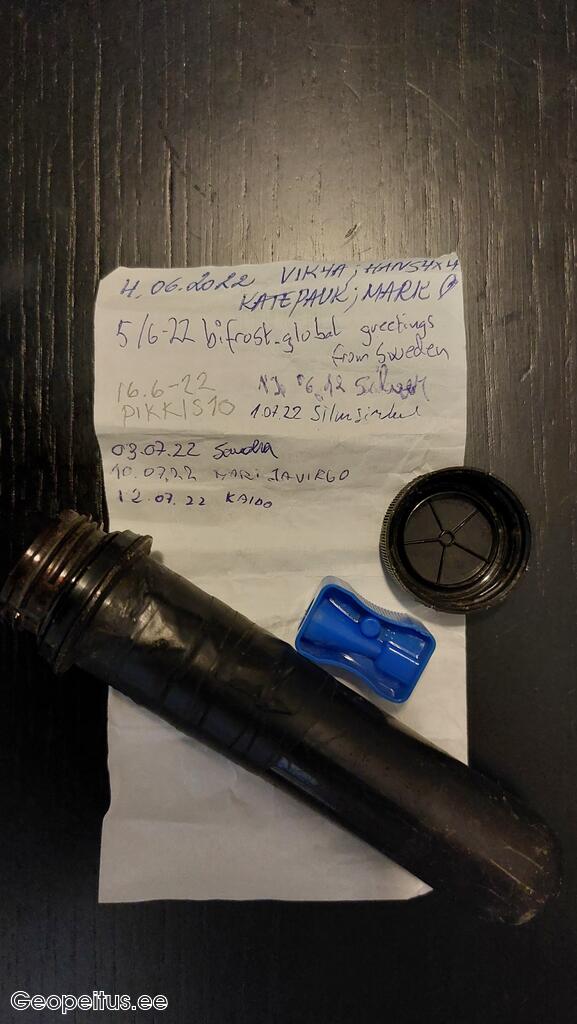 4.06.2022 VIK4A; HANS4X4
KATEPAUK; MARK
5/6-22 bifrost-global greetings
from Sweden
16.6-22
PIKKIS10
1.07.22
03.07.22 Sandra
10.07.22 MARI JA VIRGO
12.07.22 KAIDO
Geopeitus.ee